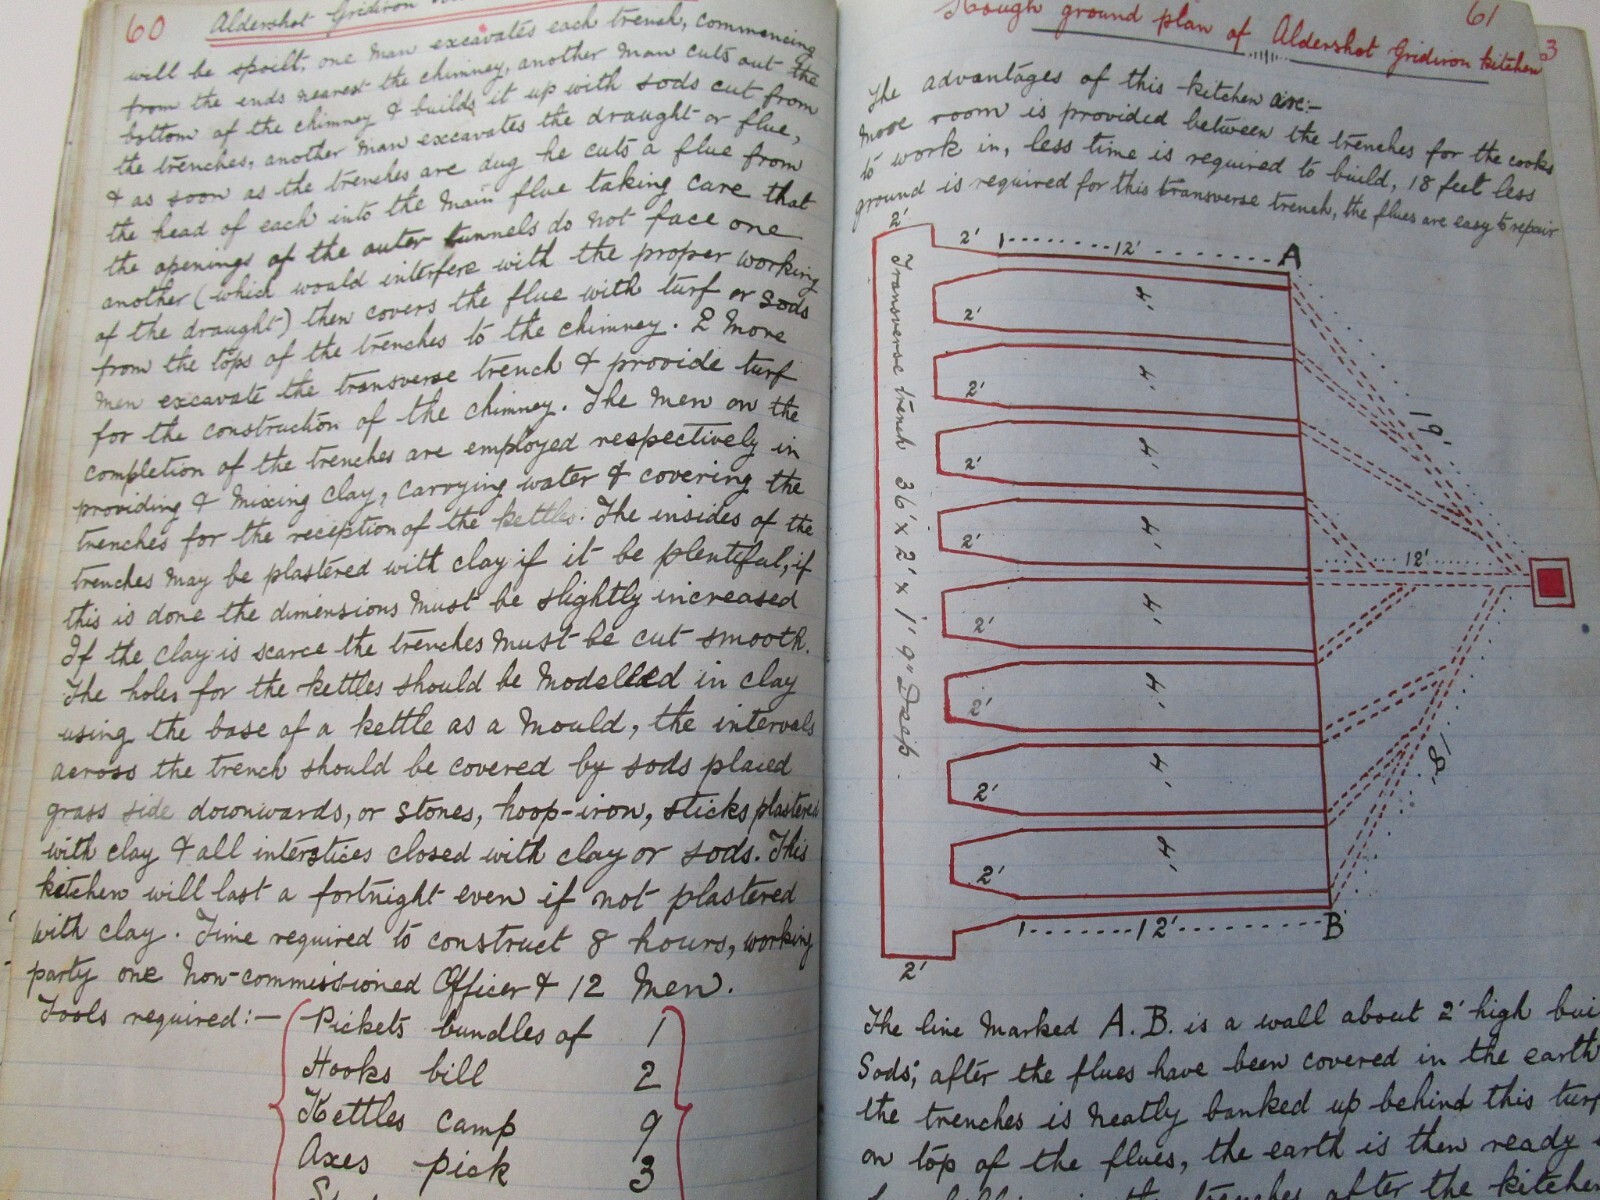 60 Aldershot Gridiron
will be spoilt, one man excavates each trench, commencing
from the ends nearest the chimney, another man cuts out the
bottom of the chimney & builds it up with sods cut from
the trenches, another man excavates the draught or flue,
& as soon as the trenches are dug he cuts a flue from
the head of each into the main flue taking care that
the openings of the outer tunnels do not face one
another (which would interfere with the proper working
of the draught) then covers the flue with turf or sods
from the tops of the trenches to the chimney. 2 More
men excavate the transverse trench & provide turf
for the construction of the chimney. The men on the
completion of the trenches are employed respectively in
providing & mixing clay, carrying water & covering the
trenches for the reception of the kettles. The insides of the
trenches may be plastered with clay if it be plentiful, if
this is done the dimensions must be slightly increased
If the clay is scarce the trenches must be cut smooth.
The holes for the kettles should be modelled in clay
using the base of a kettle as a mould, the intervals
across the trench should be covered by sods placed
grass side downwards, or stones, hoop-iron, sticks plastered
with clay & all interstices closed with clay or sods. This
kitchen will last a fortnight even if not plastered
with clay. Time required to construct 8 hours, working
party one non-commissioned Officer & 12 men.
Tools required:— Pickets bundles of 1
Hooks bill 2
Kettles camp 9
Axes pick 3
61
Rough ground plan of Aldershot Gridiron kitchen
3
The advantages of this kitchen are:-
More room is provided between the trenches for the cooks
to work in, less time is required to build, 18 feet less
ground is required for this transverse trench, the flues are easy to repair
2'
2' 12' A
Transverse trench 36' x 2' x 1' 9" Deep.
2' 4'
2' 4'
19'
2' 4'
2' 4'
12'
2' 4'
2' 4'
2' 4'
18'
2' 4'
12' B
2'
The line marked A.B. is a wall about 2' high
Sods; after the flues have been covered in the earth
the trenches is neatly banked up behind this
on top of the flues, the earth is then ready
the trenches after the kitchen